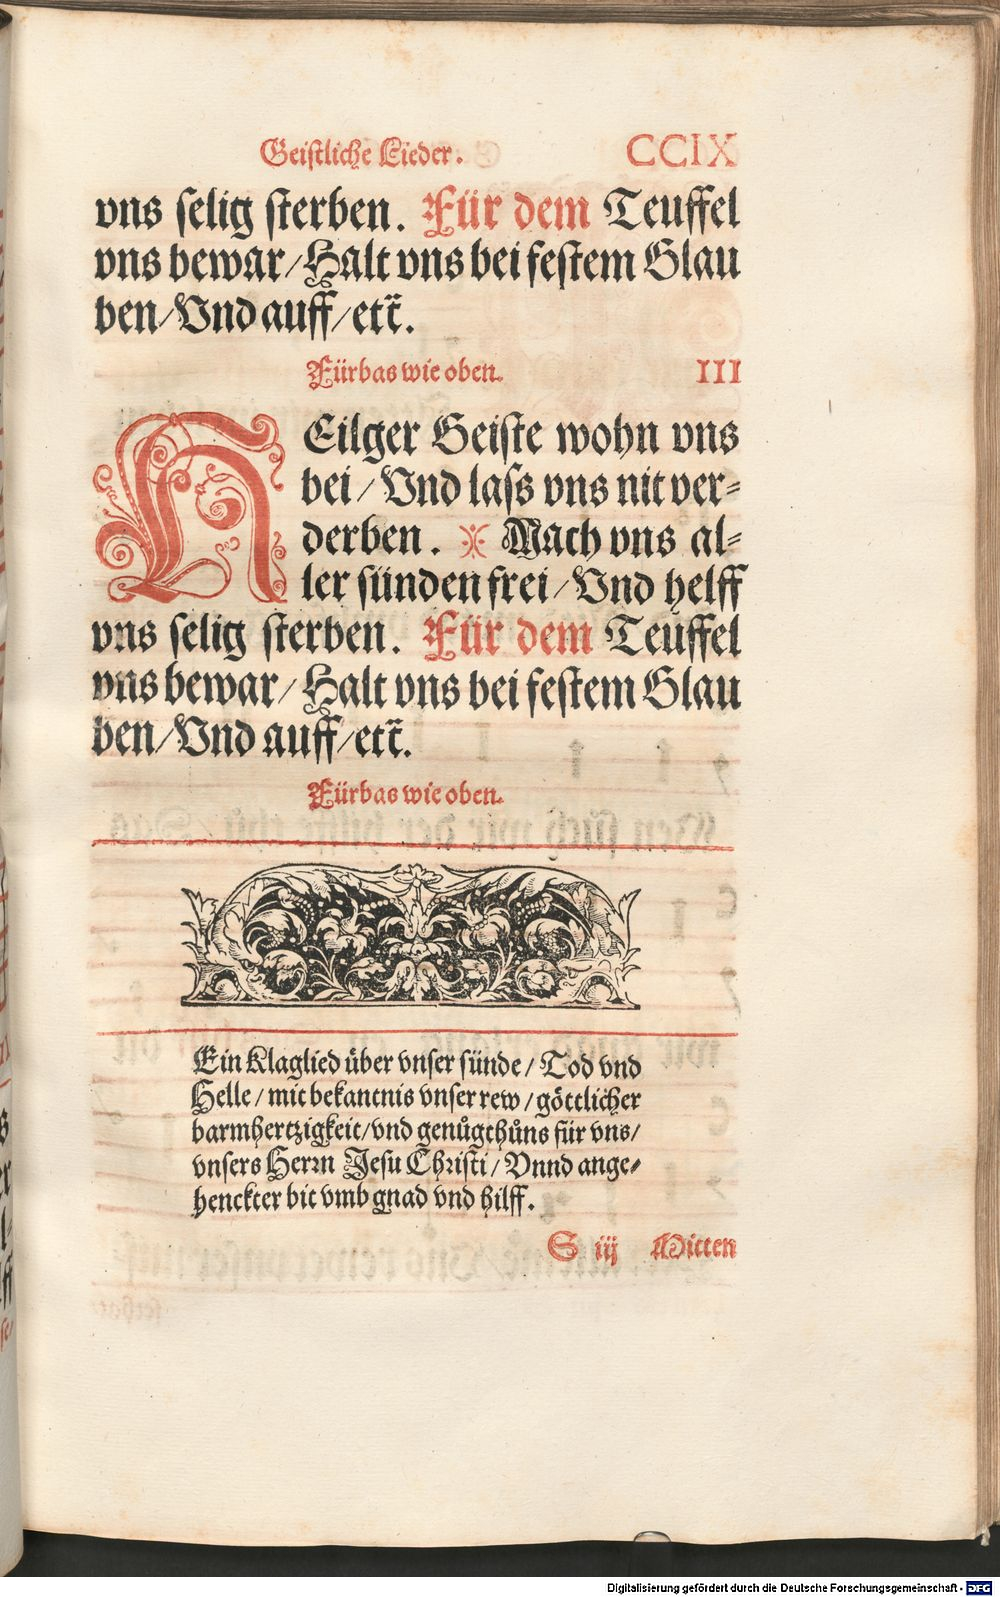 Geistliche Lieder. CCIX
vns selig sterben. Für dem Teuffel
vns bewar/Halt vns bei festem Glau
ben/Vnd auff/etc̃.
Fürbas wie oben. III
HEilger Geiste wohn vns
bei/Vnd lass vns nit ver-
derben. Mach vns al-
ler sünden frei/Vnd helff
vns selig sterben. Für dem Teuffel
vns bewar/Halt vns bei festem Glau
ben/Vnd auff/etc̃.
Fürbas wie oben.
Ein Klaglied über vnser sünde/Tod vnd
Helle/mit bekantnis vnser rew/göttlicher
barmhertzigkeit/vnd genůgthůns für vns/
vnsers Herrn Jesu Christi/Vnnd ange-
henckter bit vmb gnad vnd hilff.
S iij Mitten
Digitalisierung gefördert durch die Deutsche Forschungsgemeinschaft - DFG